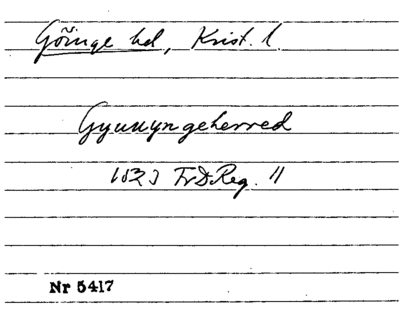 Göinge hd, Krist. l.
Gyunyngeherred
1523 FrDReg. 11
Nr 5417